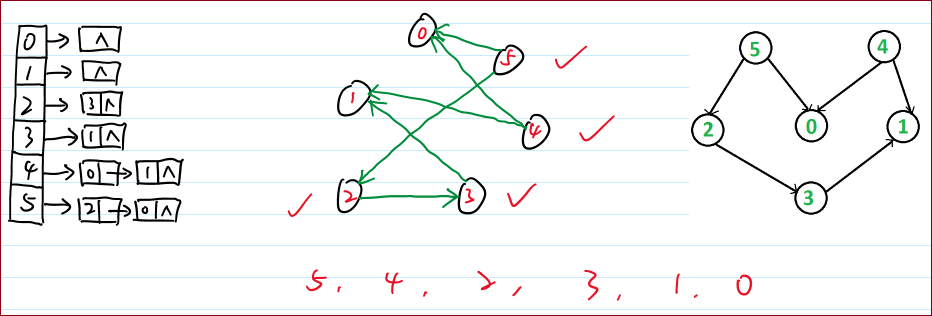 0 ∧
1 ∧
2 3 ∧
3 1 ∧
4 0 1 ∧
5 2 0 ∧
0
5
1
4
2
3
5 4
2 0 1
3
5, 4, 2, 3, 1, 0